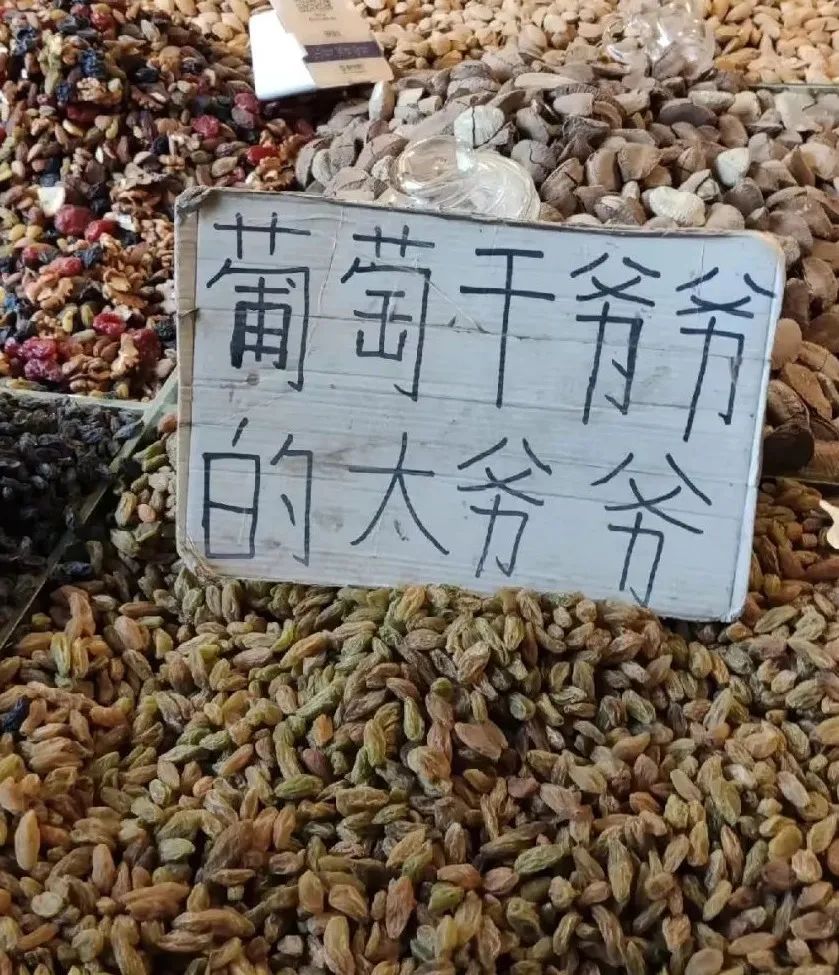 葡萄干爷爷
的大爷爷